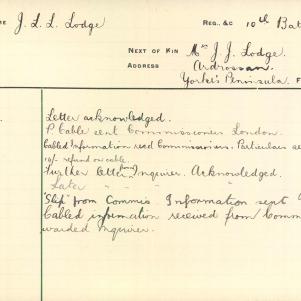 ME J. L. L. Lodge REG., &C 10th Bat
NEXT OF KIN Mr J. J. Lodge.
ADDRESS Ardrossan.
Yorke's Peninsula. F
Letter acknowledged.
P. Cable sent Commissioner London.
Cabled Information recd Commissioners. Particulars se
10/- refund on cable.
Further letter from Inquirer. Acknowledged.
Later " " "
"Slip" from Commis. Information sent
Cabled information received from Comm
warded Inquirer.